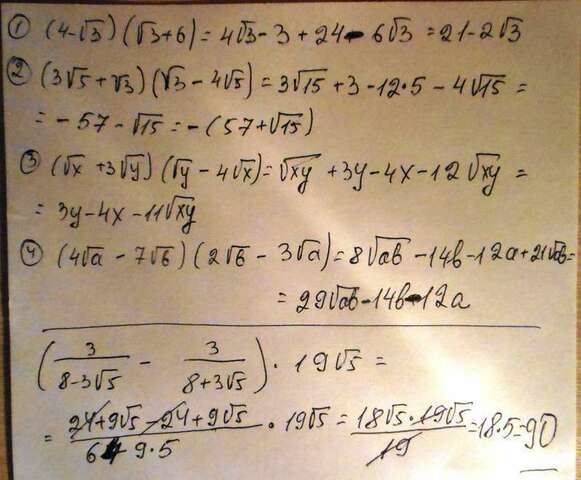 ① (4-√3)(√3+6) = 4√3-3+24-6√3 = 21-2√3
② (3√5+√3)(√3-4√5) = 3√15+3-12·5-4√15 =
= -57-√15 = -(57+√15)
③ (√x+3√y)(√y-4√x) = √xy+3y-4x-12√xy =
= 3y-4x-11√xy
④ (4√a-7√b)(2√b-3√a) = 8√ab-14b-12a+21√ab =
= 29√ab-14b-12a
(3/(8-3√5) - 3/(8+3√5)) · 19√5 =
= (24+9√5-24+9√5)/(64-9·5) · 19√5 = (18√5·19√5)/19 = 18·5 = 90